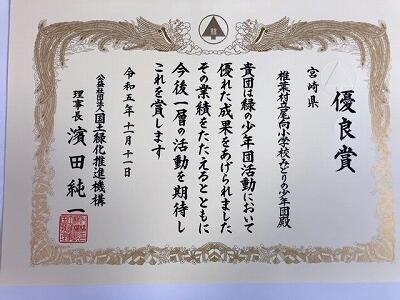 優良賞
宮崎県
椎葉村立尾向小学校みどりの少年団殿
貴団は緑の少年団活動において
優れた成果をあげられました
その業績をたたえるとともに
今後一層の活動を期待し
これを賞します
令和五年十一月十一日
公益社団法人国土緑化推進機構
理事長 濱田純一